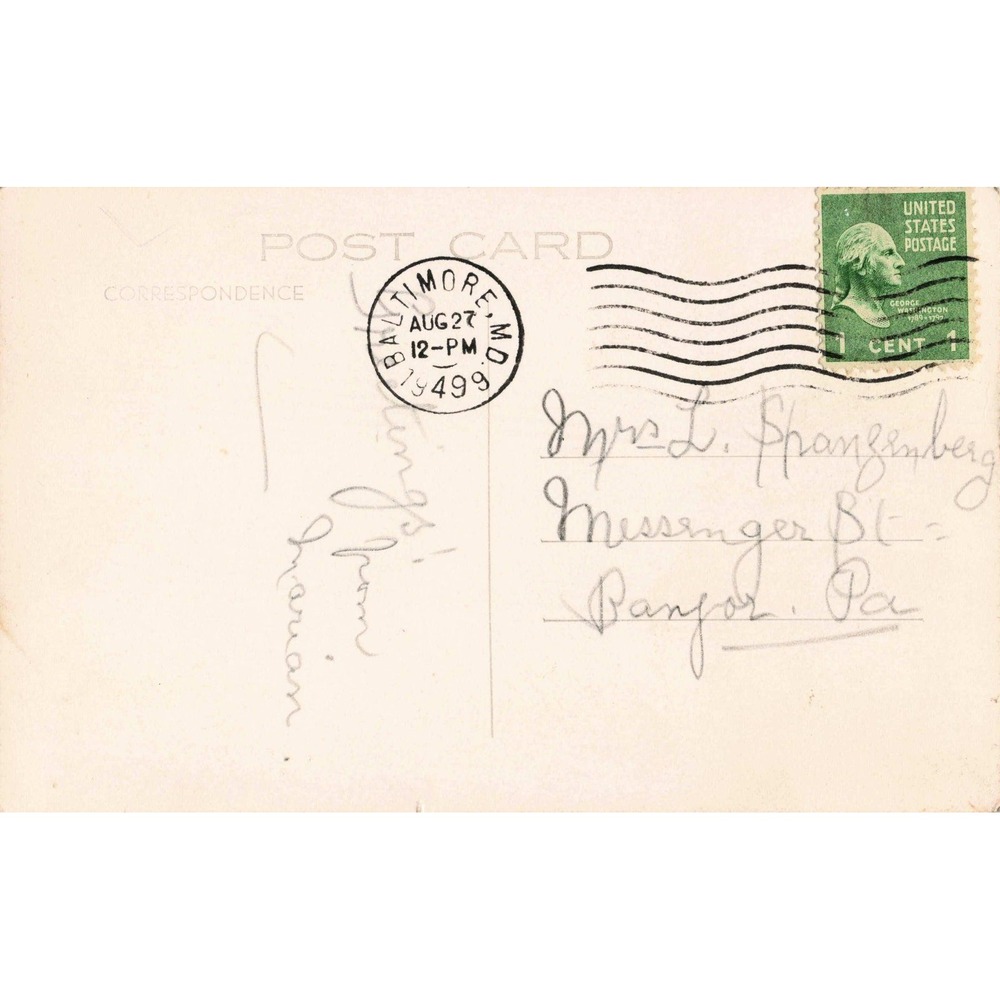 POST CARD
CORRESPONDENCE
Greetings!
from
Marian
BALTIMORE, MD.
AUG 27
12-PM
19499
UNITED
STATES
POSTAGE
GEORGE
WASHINGTON
1789-1797
1 CENT 1
Mrs L. Spangenberg
Messenger St-
Bangor. Pa